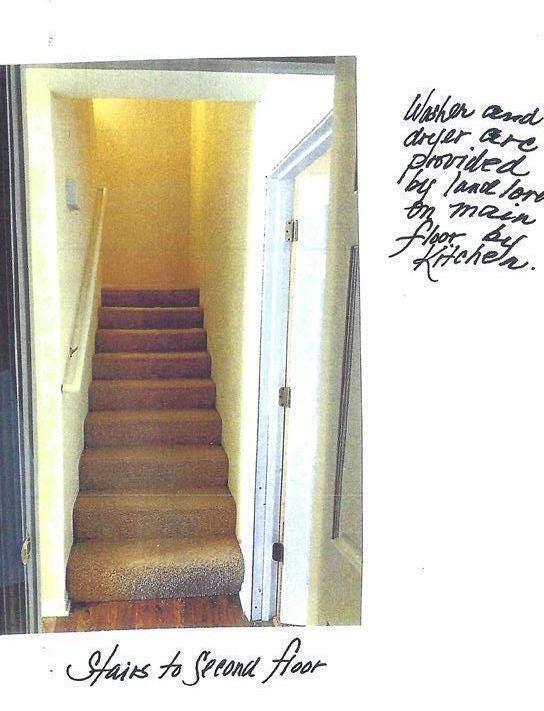 Washer and
dryer are
provided
by landlord
on main
floor by
Kitchen.
Stairs to Second floor